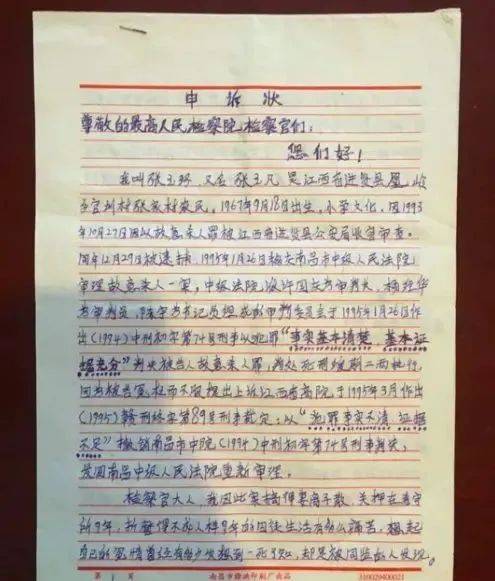 申诉状
尊敬的最高人民检察院检察官们：
您们好！
我叫张玉环，又名张玉凡 是江西省进贤县凰岭
官圳村张家村农民，1967年9月18日出生，小学文化，因1993
年10月27日因以故意杀人罪被江西省进贤县公安局收容审查。
同年12月29日被逮捕，1995年1月26日 南昌市中级人民法院
审理故意杀人一案，中级法院 审判长，
审判员， 书记员组成 于1995年1月26日作
出(1994)中刑初字第74号刑事以犯罪“事实基本清楚，基本证
据充分”判决被告人故意杀人罪，判处死刑缓期二 执行，
因为被告冤枉而不服提出上诉江西省高院，于1995年3月作出
(1995)赣刑终字第89号刑事裁定：以“犯罪事实不清 证据
不足”撤销南昌市中院(1994)中刑初字第74号刑事判决，
发回南昌中级人民法院重新审理。
检察官大人，我因此案搞得妻离子散，关押在看守
所9年，折磨得不成人样9年的囚徒生活有多么痛苦，想起
自己的冤情曾经有多少次想到一死了知，却是被同监的人发现
第 1 页
南昌市 印刷厂出品
310029400021